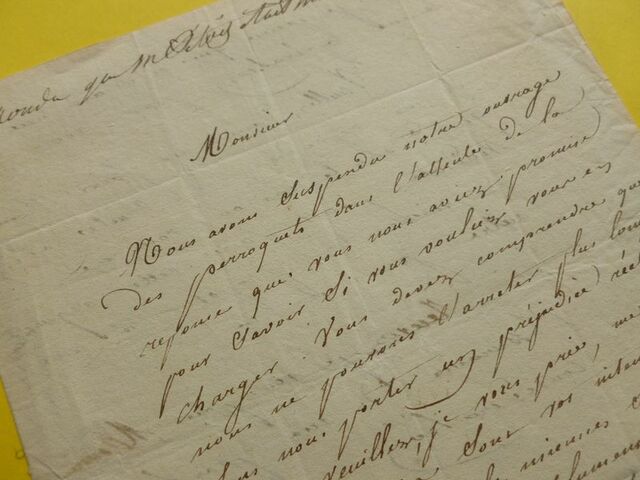 Monsieur
Nous avons suspendu notre ouvrage
des perroquets dans l'attente de la
reponse que vous nous aviez promise
pour savoir si vous vouliez vous en
charger. Vous devez comprendre que
nous ne pouvons l'arreter plus long
sans nous porter un préjudice réel
veuillez, je vous prie, me
sont vos inten
les miennes